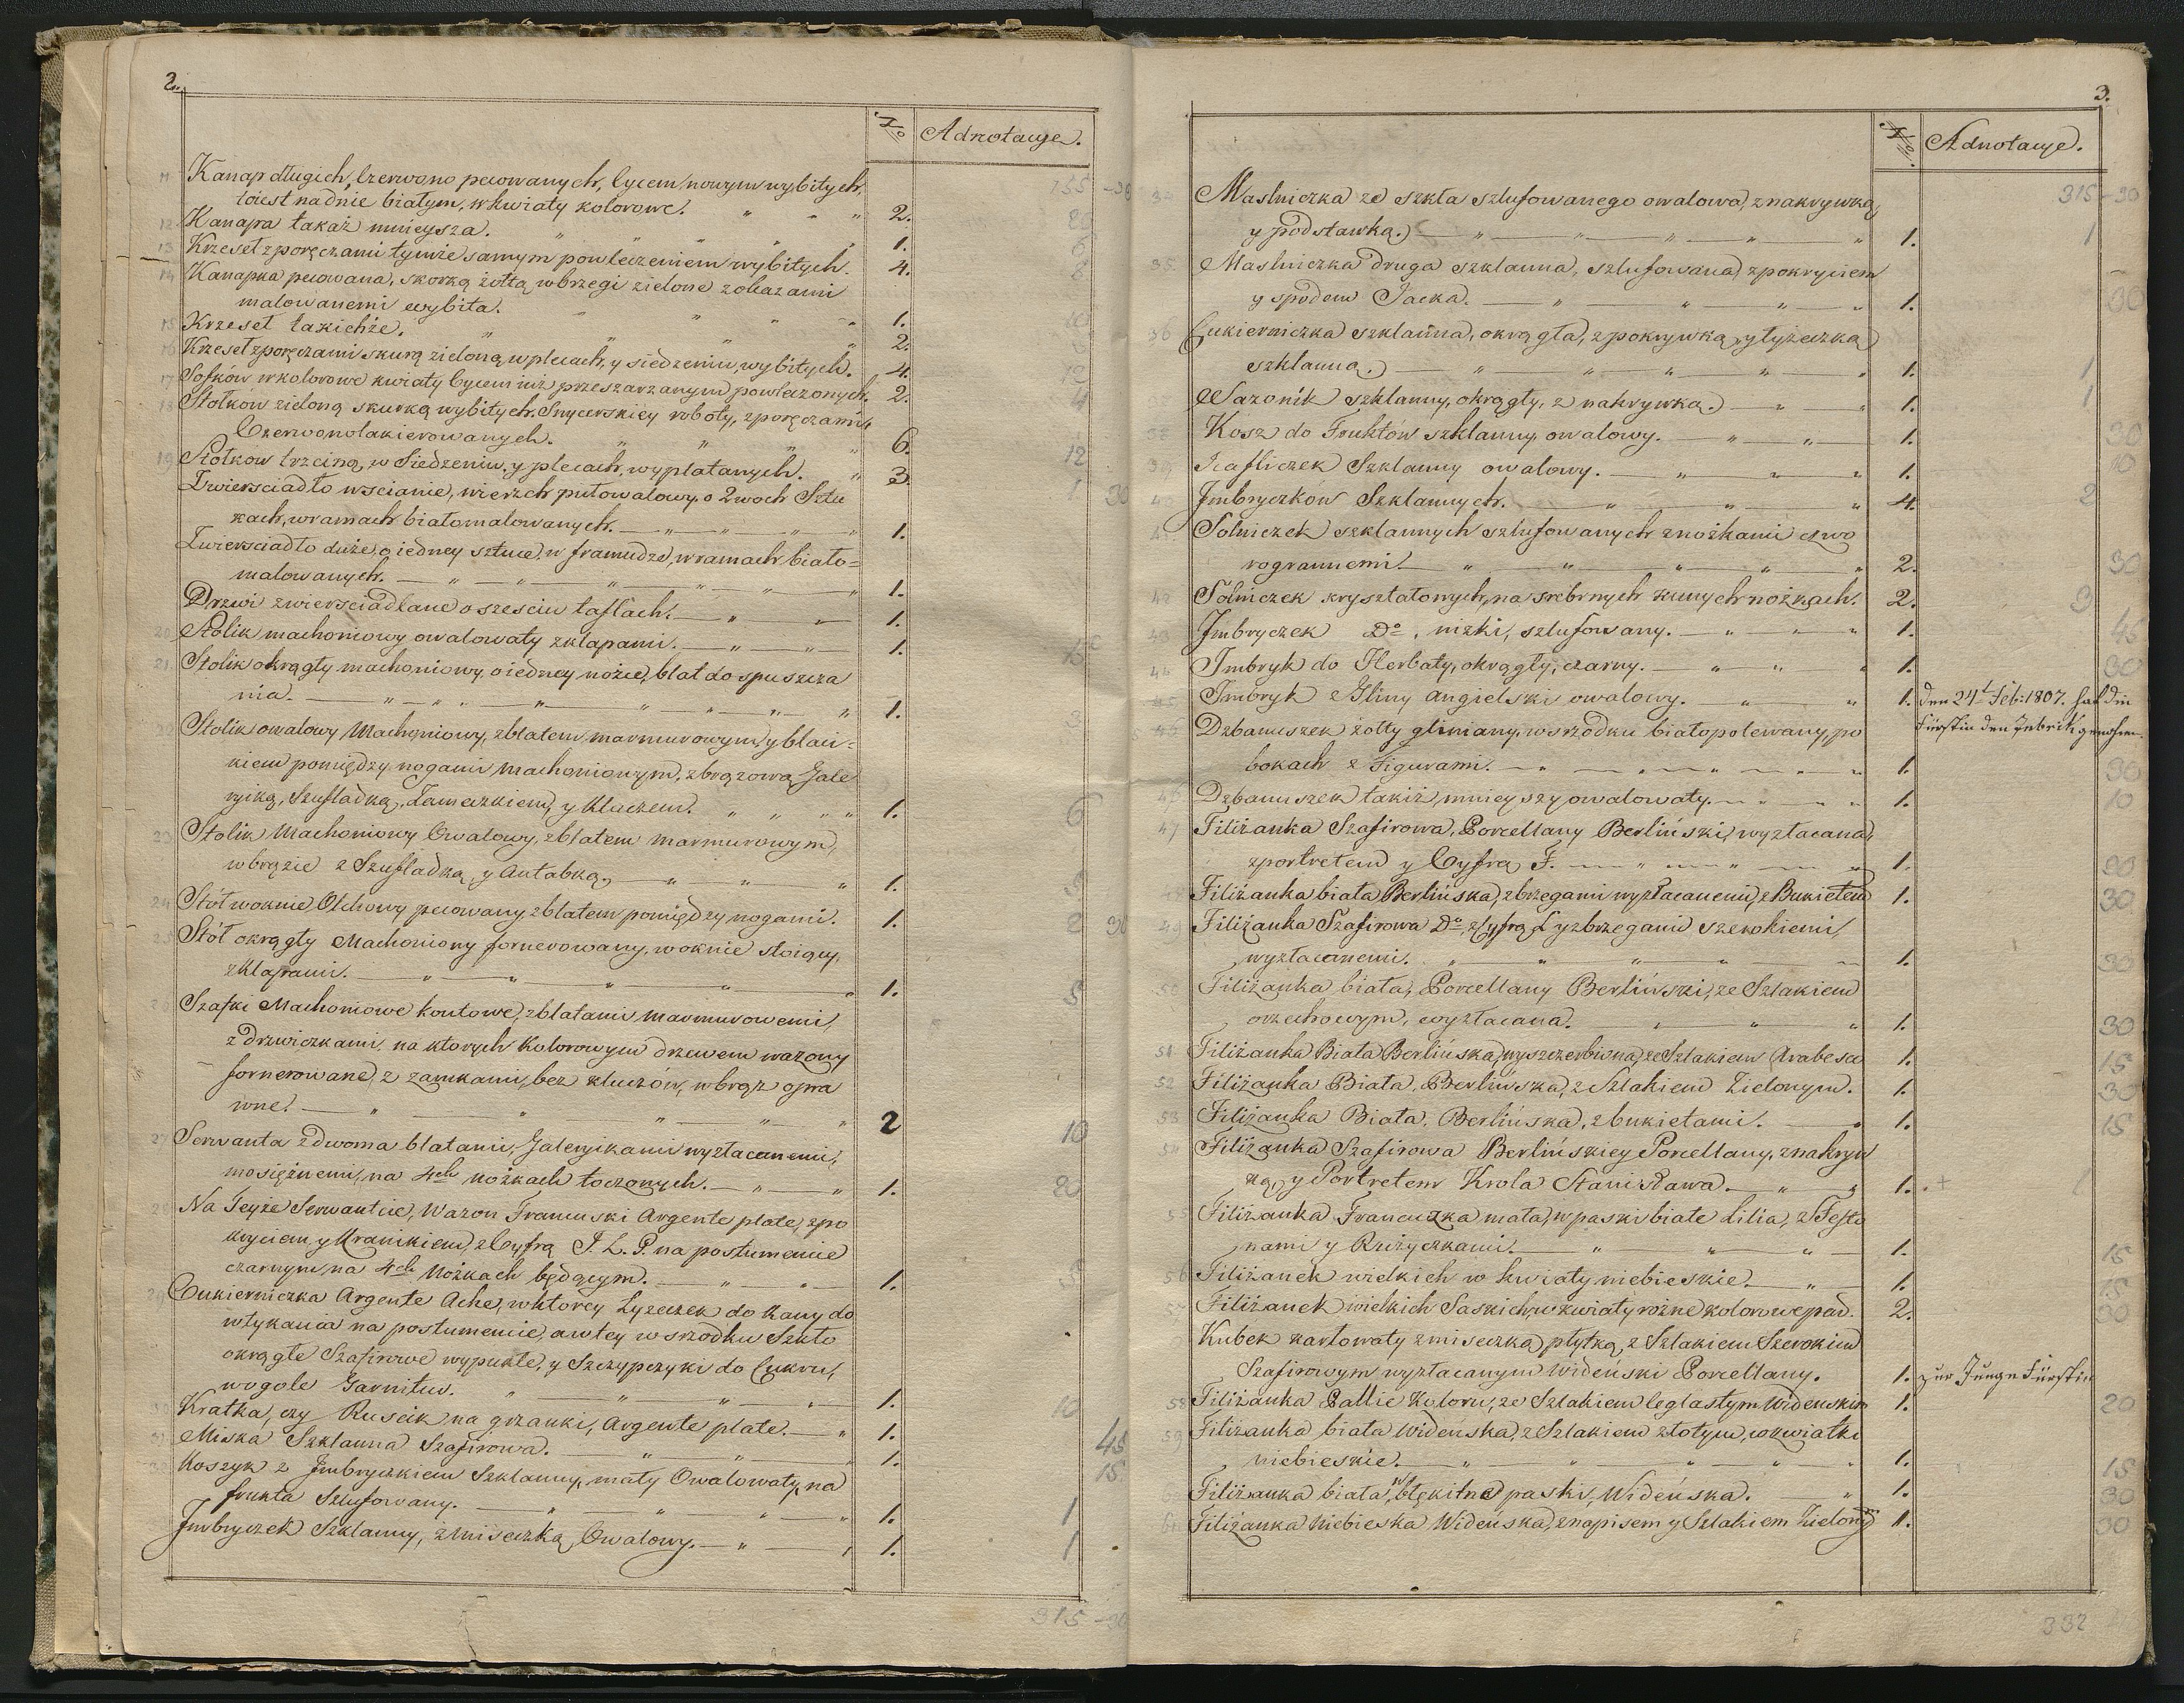 2.
No Adnotacye.
11 Kanap długich, Czerwono pecowanych, Cycem nowym wybitych,
toiest na dnie białym, w kwiaty kolorowe. " " " 2. 155 - 30
12 Kanapa takaż mnieysza. " " " " 1. 20
13 Krzeseł z poręczami tymże samym powleczeniem wybitych. 4. 6
14 Kanapka pecowana, skorką żółtą w brzegi zielone z obrazami 8
malowanemi wybita. " " " " 1.
15 Krzeseł takichże. " " " " 2. 10
16 Krzeseł z poręczami skurą zieloną, w plecach, y siedzeniu, wybitych. 4. 12
17 Sofków w kolorowe kwiaty Cycem iuż przeszarzanym powleczonych. 2. 4
18 Stołków zieloną skurką wybitych. Snycerskiey roboty, z poręczami
Czerwono lakierowanych. " " " " 6. 12
19 Stołkow trzciną, w Siedzeniu, y plecach, wyplatanych. " 3. 1 30
Zwierściadło w ścianie, wierzch pułowalowy, o 2woch Sztu
kach, w ramach biało malowanych. — " — " — " — " 1.
Zwierściadło duże, o iedney sztuce, w framudze, w ramach biało=
malowanych. — " — " — " — " — " 1.
Drzwi zwierściadlane o sześciu taflach. — " — " 1.
20 Stolik machoniowy owalowaty z klapami. — " — " 1. 15
21 Stolik okrągły machoniowy, o iedney nożce, blat do spuszcza
nia. — " — " — " — " — " — " 1.
22 Stolik owalowy Machoniowy, z blatem marmurowym, y blaci=
kiem pomiędzy nogami Machoniowym, z brązową Gale
ryiką, Szufladką, Zameczkiem, y Kluczem. " " " " 1. 6
23 Stolik Machoniowy Owalowy, z blatem marmurowym,
w brązie z Szufladką, y Antabką. — " — " — " 1. 5
24 Stół w oknie Olchowy pecowany z blatem pomiędzy nogami. 1. 2 30
25 Stół okrągły Machoniowy fornerowany, w oknie stoiący,
z klapami. — " — " — " — " — " 1. 5
26 Szafki Machoniowe kontowe, z blatami marmurowemi,
z drzwiczkami, na ktorych Kolorowym drzewem wazony
fornerowane, z zamkami, bez kluczów, w brąz opra
wne. — " — " — " — " — " 2 10
27 Serwanta z dwoma blatami, Galeryikami wyzłacanemi,
mosiężnemi, na 4ch nożkach toczonych. — " — " 1. 20
28 Na Teyże Serwantcie, Wazon Francuski Argente plate, z po
kryciem, y Kranikiem, z Cyfrą I. L. P. na postumencie
czarnym, na 4ch Nóżkach będącym. — " — " 1. 5
29 Cukierniczka Argente Ache, w ktorey Łyżeczek do Kawy do
wtykania na postumencie, a w tey w srzodku Szkło
okrągłe Szafirowe wypukłe, y Szczypczyki do Cukru,
wogole Garnitur. " — " — " — " 1. 10
30 Kratka, czy Ruscik na grzanki, Argente plate. — " 1.
31 Miska Szklanna Szafirowa. — " — " 1. 45
32 Koszyk z Jmbryczkiem Szklanny, mały Owalowaty, na 15
frukta Szlufowany. — " — " — " — " 1. 1
Jmbryczek Szklanny, z miseczką, Owalowy. — " — " 1. 1
315 - 30
3.
No. Adnotacye.
34 Maslniczka ze szkła szlufowanego owalowa, z nakrywką, 315 - 30
y podstawką. — " — " — " — " — " 1. 1
35 Maslniczka druga szklanna, szlufowana, z pokryciem
y spodem Jacka. — " — " — " — " 1. 30
36 Cukierniczka szklanna, okrągła, z pokrywką, y łyżeczką
szklanną. — " — " — " — " — " 1. 1
Wazonik szklanny, okrągły, z nakrywką. — " — " 1. 1
38 Kosz do Fruktów szklanny, owalowy. — " — " — 1. 30
39 Szafliczek Szklanny owalowy. — " — " — " 1. 10
40 Jmbryczków Szklannych. — " — " — " 4. 2
41 Solniczek szklannych szlufowanych z nożkami czwo
rogrannemi. — " — " — " — " — " 2. 30
42 Sólniczek kryształowych, na srebrnych kutych nożkach. 2. 3
43 Jmbryczek Do, nizki, szlufowany. — " — " — " 1. 45
44 Jmbryk do Herbaty, okrągły, czarny. — " — " — " 1. 30
45 Jmbryk z Gliny angielski owalowy. — " — " 1. den 24t Feb: 1807. hat die
Fürstin den Jebrik genohmen
46 Dzbanuszek żołty gliniany, w srzodku biało polewany, po
bokach z Figurami. — " — " — " — " 1. 30
46 Dzbanuszek takiż, mnieyszy owalowaty. — " — " 1. 10
47 Filiżanka Szafirowa, Porcellany Berliński, wyzłacana,
z portretem y Cyfrą F. — " — " — " 1. 90
48 Filiżanka biała Berlińska, z brzegami wyzłacanemi, z Bukietem 1. 30
49 Filiżanka Szafirowa Do, z Cyfrą L y z brzegami szerokiemi,
wyzłacanemi. " — " — " — " 1. 30
50 Filiżanka biała, Porcellany Berliński, ze Szlakiem
orzechowym, wyzłacana. — " — " — " 1. 30
51 Filiżanka Biała Berlińska, wyszczerbiona, ze Szlakiem Arabesce 1. 15
52 Filiżanka Biała, Berlińska, z Szlakiem Zielonym. 1. 30
53 Filiżanka Biała, Berlińska, z bukietami. — " 1. 15
54 Filiżanka Szafirowa Berlińskiey Porcellany, z nakryw
ką, y Portretem Krola Stanisława. — " — " 1. + 1
55 Filiżanka Francuzka mała, w paski białe Lilia, z Festo
nami y Rużyczkami. — " — " — " — 1. 15
56 Filiżanek wielkich w kwiaty niebieskie. — " — 1. 15
57 Filiżanek wielkich Saskich, w kwiaty rożne kolorowe pad. 2. 30
Kubek kartowaty z miseczką płytką, z Szlakiem Szerokim
Szafirowym wyzłacanym Widenski Porcellany. 1. zur Junge Fürstin
58 Filiżanka Pallie Koloru, ze Szlakiem ceglastym Widenskim 1. 20
59 Filiżanka biała Wideńska, z Szlakiem złotym, w kwiatki
niebieskie. — " — " — " — " — " 1. 15
Filiżanka biała, w błękitne paski, Wideńska. — " 1. 30
61 Filiżanka Niebieska Wideńska, z napisem y Szlakiem Zielonym 1. 30
332